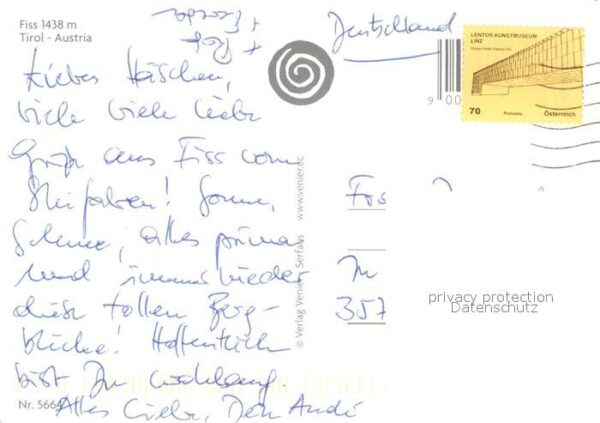 Fiss 1438 m
Tirol - Austria
Deutschland
Liebes Häschen,
viele viele liebe
Grüße aus Fiss vom
Skifahren! Sonne,
Schnee, alles prima
und immer wieder
diese tollen Berg-
blicke! Hoffentlich
bist Du wohlauf
Alles Liebe, Dein André
Nr. 5664
© Verlag Venier, Serfaus www.venier.cc
LENTOS KUNSTMUSEUM
LINZ
70
Österreich
9 00
357
privacy protection
Datenschutz